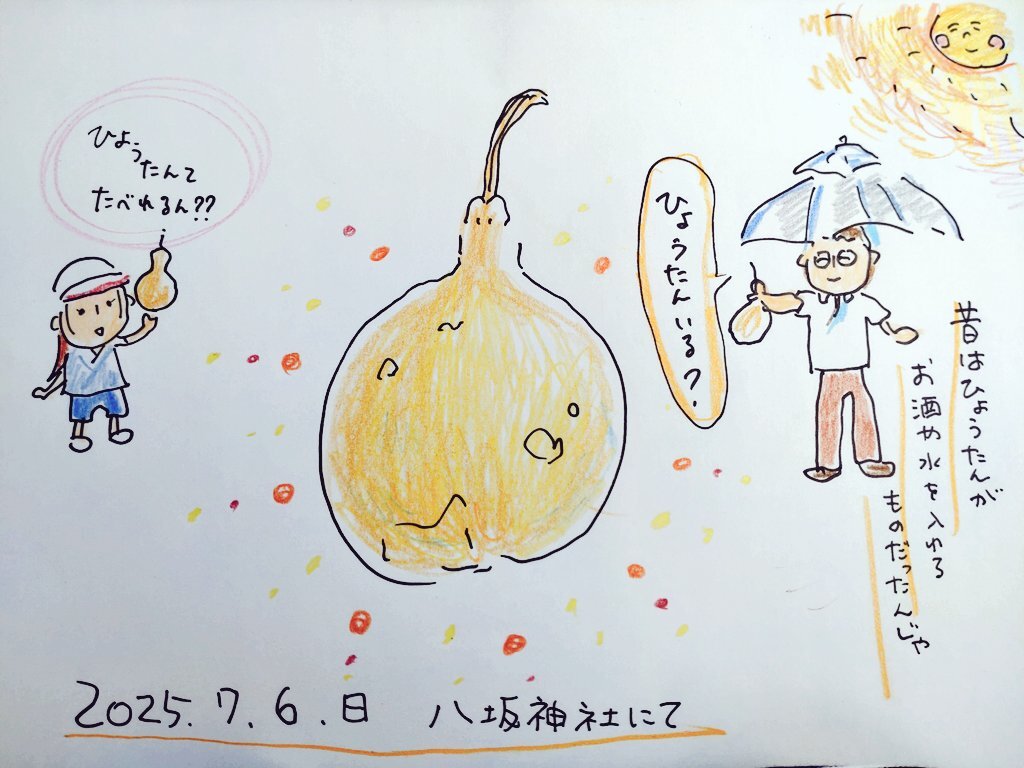 ひょうたんて
たべれるん??
ひょうたんいる?
昔はひょうたんが
お酒や水を入れる
ものだったんじゃ
2025.7.6.日 八坂神社にて